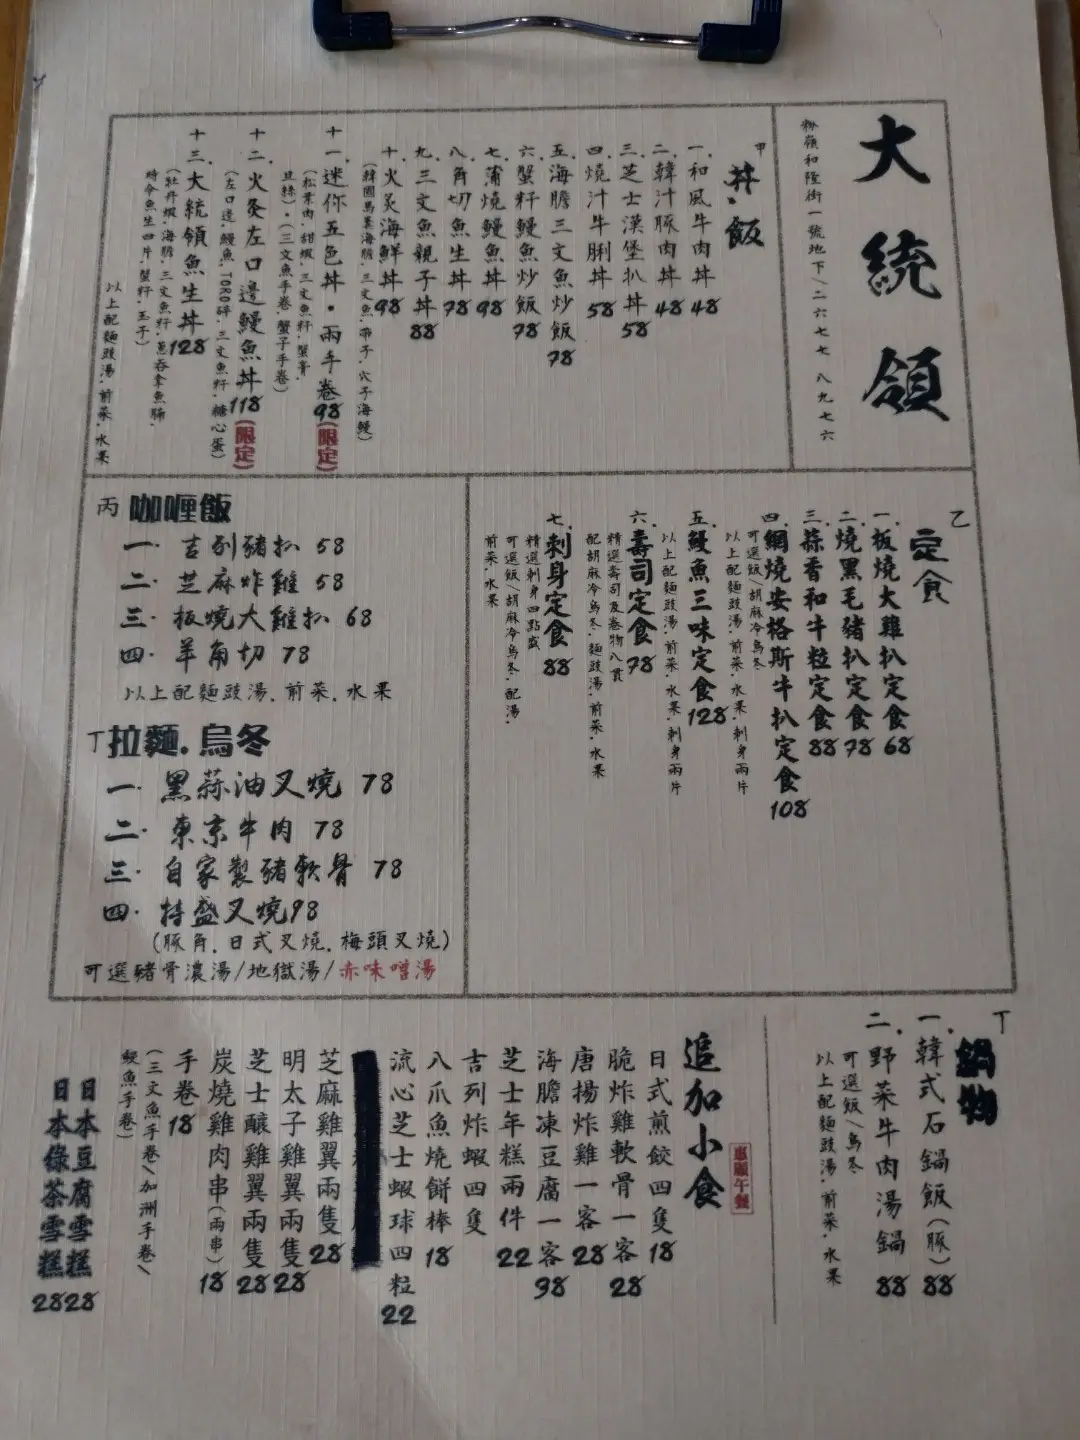 大統領
粉嶺和隆街一號地下/二六七七 八九七六
甲 丼.飯
一.和風牛肉丼48
二.韓汁豚肉丼48
三.芝士漢堡扒丼58
四.燒汁牛脷丼58
五.海膽三文魚炒飯78
六.蟹籽鰻魚炒飯78
七.蒲燒鰻魚丼98
八.角切魚生丼78
九.三文魚親子丼88
十.火炙海鮮丼98
(韓國馬糞海膽.三文魚.帶子.穴子海鰻)
十一.迷你五色丼・兩手卷98(限定)
(松葉肉.甜蝦.三文魚籽.蟹膏.
玉絲)・(三文魚手卷.蟹子手卷)
十二.火炙左口邊鰻魚丼118(限定)
(左口邊.鰻魚.TORO碎.三文魚籽.糖心蛋)
十三.大統領魚生丼128
(牡丹蝦.海膽.三文魚籽.
時令魚生四片.蟹籽.玉子)
以上配麵豉湯.前菜.水果
乙 定食
一.板燒大雞扒定食68
二.燒黑毛豬扒定食78
三.蒜香和牛粒定食88
四.網燒安格斯牛扒定食108
可選飯/胡麻冷烏冬
以上配麵豉湯.前菜.水果.刺身兩片
五.鰻魚三味定食128
以上配麵豉湯.前菜.水果.刺身兩片
六.壽司定食78
精選壽司及卷物八貫
配胡麻冷烏冬.麵豉湯.前菜.水果
七.刺身定食88
精選刺身四點盛
可選飯/胡麻冷烏冬.配湯.
前菜.水果
丙 咖喱飯
一. 吉列豬扒 58
二. 芝麻炸雞 58
三. 板燒大雞扒 68
四. 羊角切 78
以上配麵豉湯.前菜.水果
丁 拉麵.烏冬
一. 黑蒜油叉燒 78
二. 東京牛肉 78
三. 自家製豬軟骨 78
四. 特盛叉燒98
(豚角.日式叉燒.梅頭叉燒)
可選豬骨濃湯/地獄湯/赤味噌湯
丁 鍋物
一.韓式石鍋飯(豚)88
二.野菜牛肉湯鍋 88
可選飯/烏冬
以上配麵豉湯.前菜.水果
追加小食
惠顧午餐
日式煎餃四隻18
脆炸雞軟骨一客28
唐揚炸雞一客28
海膽凍豆腐一客98
芝士年糕兩件22
吉列炸蝦四隻
八爪魚燒餅棒18
流心芝士蝦球四粒22
芝麻雞翼兩隻28
明太子雞翼兩隻28
芝士釀雞翼兩隻28
炭燒雞肉串(兩串)18
手卷18
(三文魚手卷/加洲手卷/
鰻魚手卷)
日本豆腐雪糕28
日本綠茶雪糕28